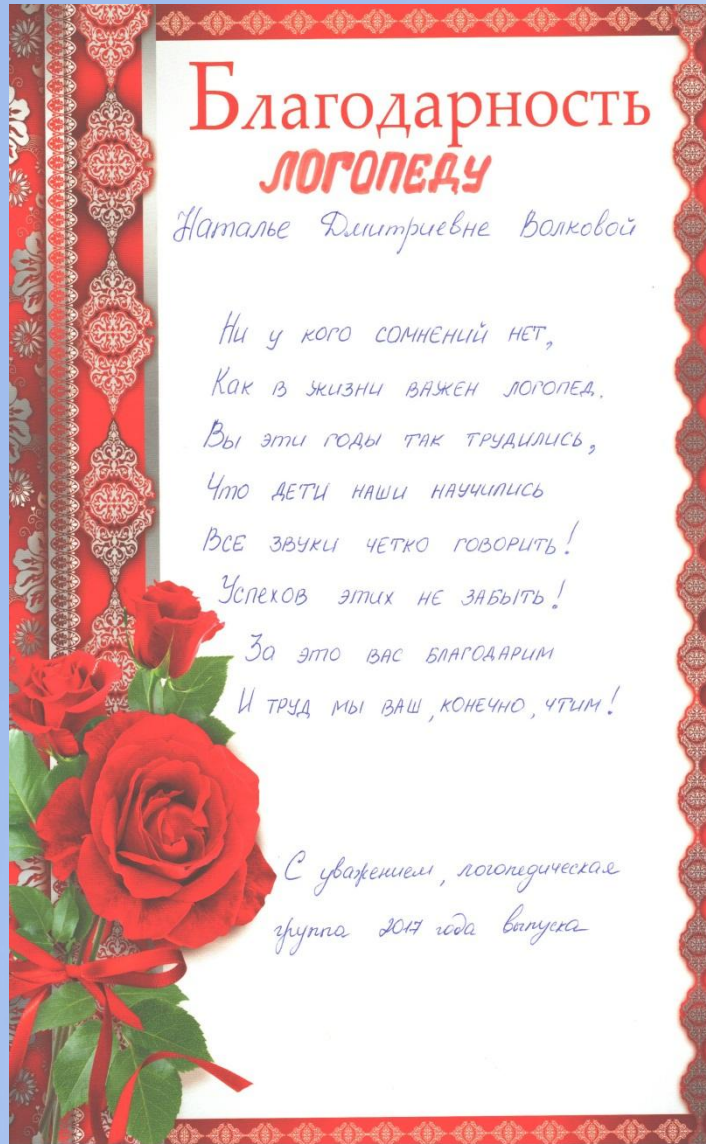 Благодарность
ЛОГОПЕДУ
Наталье Дмитриевне Волковой
Ни у кого сомнений нет,
Как в жизни важен логопед.
Вы эти годы так трудились,
Что дети наши научились
Все звуки четко говорить!
Успехов этих не забыть!
За это вас благодарим
И труд мы ваш, конечно, чтим!
С уважением, логопедическая
группа 2017 года выпуска